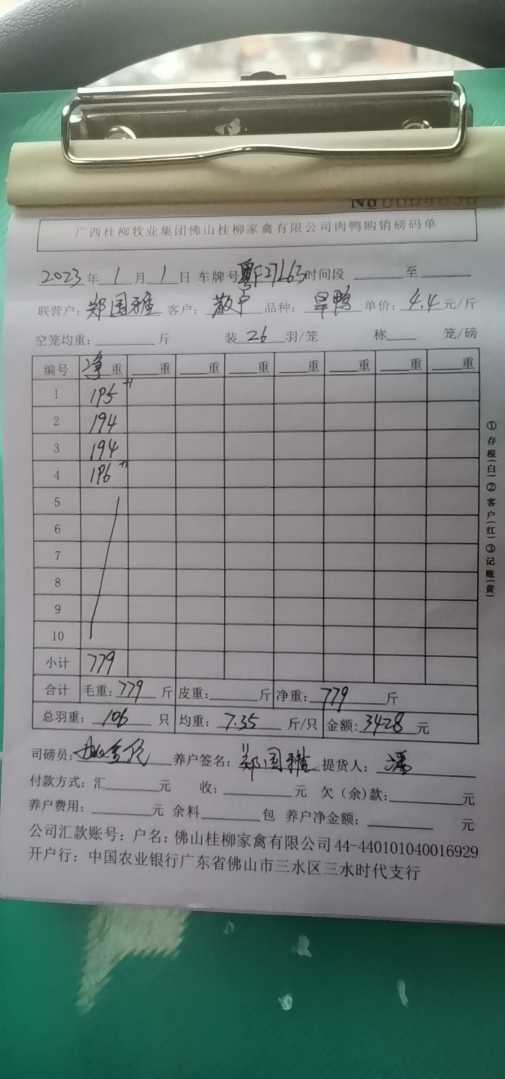 No
广西桂柳牧业集团佛山桂柳家禽有限公司肉鸭购销磅码单
2023年1月1日 车牌号粤F27L63时间段____至____
联营户:郑国雅 客户:散户 品种:旱鸭 单价:4.4元/斤
空笼均重:____斤 装26羽/笼 称____笼/磅
编号 净重 __重 __重 __重 __重 __重 __重 __重
1 195
2 194
3 194
4 196
5
6
7
8
9
10
小计 779
合计 毛重:779斤 皮重:____斤 净重:779斤
总羽重:106只 均重:7.35斤/只 金额:3428元
司磅员: 养户签名:郑国雅 提货人:潘
付款方式:汇____元 收:____元 欠(余)款:____元
养户费用:____元 余料____包 养户净金额:____元
公司汇款账号:户名:佛山桂柳家禽有限公司 44-440101040016929
开户行:中国农业银行广东省佛山市三水区三水时代支行
①存根(白)②客户(红)③记账(黄)